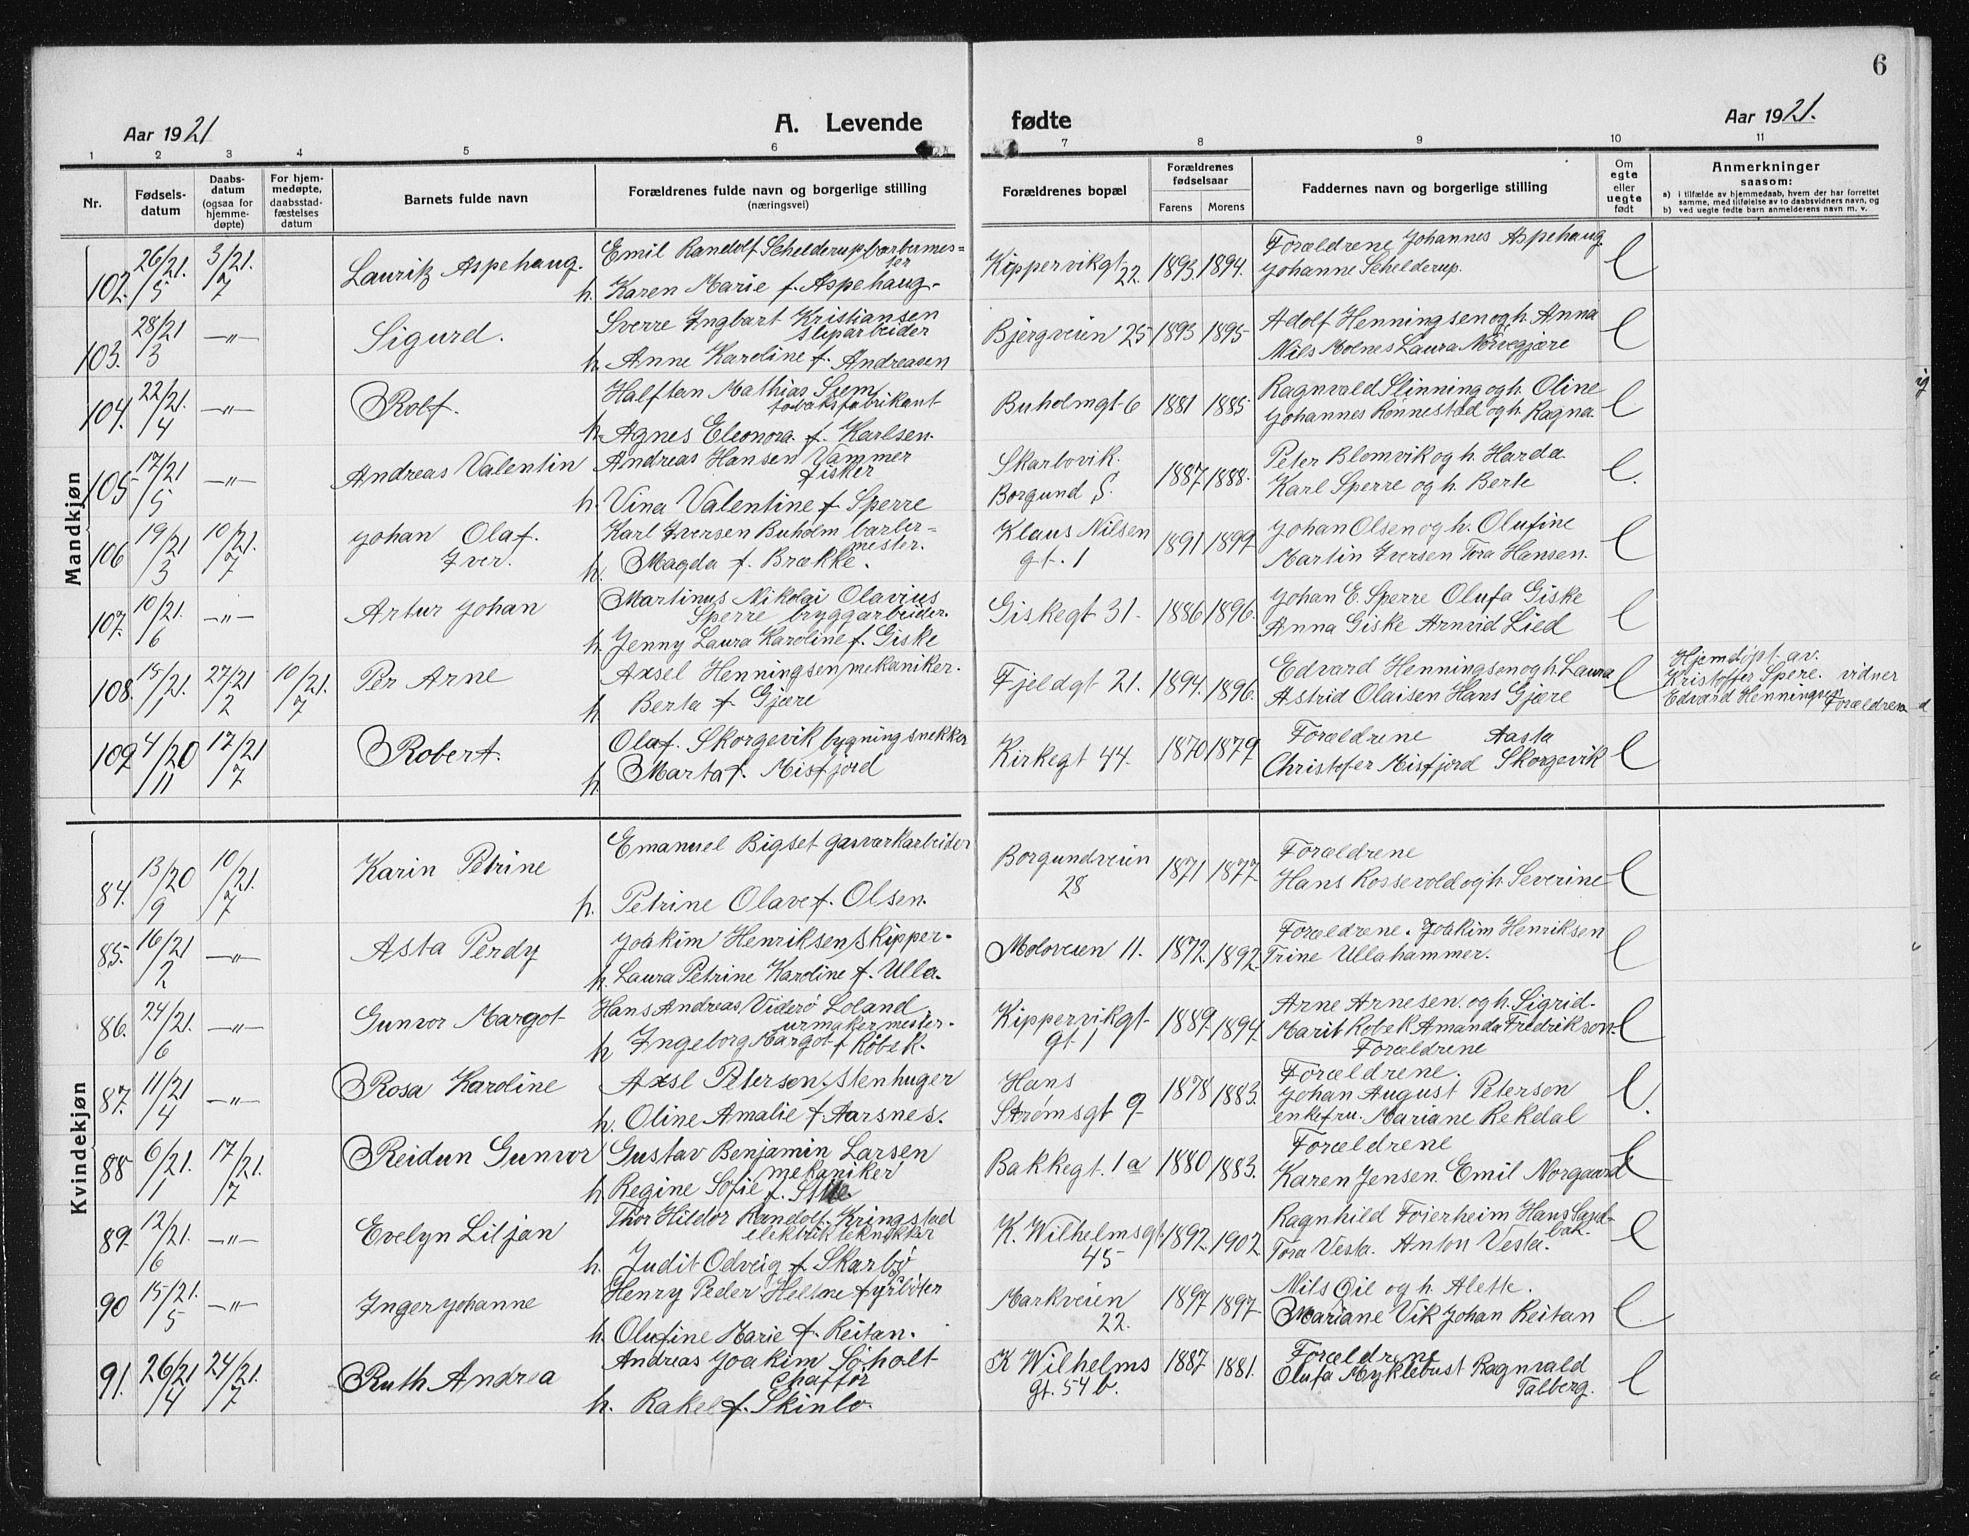 6
Aar 1921
A. Levende fødte
Aar 1921.
1 2 3 4 5 6 7 8 9 10 11
Nr.
Fødsels-
datum
Daabs-
datum
(ogsaa for
hjemme-
døpte)
For hjem-
medøpte,
daabsstad-
fæstelses
datum
Barnets fulde navn
Forældrenes fulde navn og borgerlige stilling
(næringsvei)
Forældrenes bopæl
Forældrenes
fødselsaar
Farens Morens
Faddernes navn og borgerlige stilling
Om
egte
eller
uegte
født
Anmerkninger
saasom:
a) i tilfælde av hjemmedaab, hvem der har forrettet
samme, med tilføielse av to daabsvidners navn, og
b) ved uegte fødte barn anmelderens navn m. v.
Mandkjøn
102. 26/5 21. 3/7 21. Lauritz Aspehaug.
Emil Randolf Schelderup barbermes=
ter
h. Karen Marie f. Aspehaug.
Kippervikgt 22. 1893. 1894.
Forældrene Johannes Aspehaug
Johanne Schelderup.
E
103. 28/3 21 —"— Sigurd.
Sverre Ingbart Kristiansen
sliparbeider
h. Anne Karoline f. Andreasen
Bjergveien 25 1893 1895
Adolf Henningsen og h. Anna
Nils Molnes Laura Norvegjære
E
104. 22/4 21. —"— Rolf.
Halften Mathias Siem
tobaksfabrikant
h. Agnes Eleonora f. Karlsen.
Buholmgt 6 1881 1885
Ragnvald Slinning og h. Oline
Johannes Rønnestad og h. Ragna.
E
105 17/5 21 —"— Andreas Valentin
Andreas Hansen Vammer
fisker
h. Vina Valentine f. Sperre
Skarbovik.
Borgund S. 1887. 1888.
Peter Blomvik og h. Harda.
Karl Sperre og h. Berte
E.
106 19/3 21 10/7 21. Johan Olaf.
Iver.
Karl Iversen Buholm barber=
mester.
h. Magda f. Brække.
Klaus Nilsen
gt. 1 1891 1899
Johan Olsen og h. Olufine
Martin Iversen Tora Hansen.
E
107. 10/6 21. —"— Artur Johan
Martinus Nikolai Olavius
Sperre bryggarbeider.
h. Jenny Laura Karoline f. Giske
Giskegt 31. 1886 1896.
Johan E. Sperre Olufa Giske
Anna Giske Arnvid Lied
E
108. 15/1 21. 27/2 21 10/7 21. Per Arne
Axsel Henningsen mekaniker.
h Berta f. Gjære
Fjeldgt 21. 1894. 1896.
Edvard Henningsen og h. Laura
Astrid Olaisen Hans Gjære
E
Hjemdøpt av.
Kristoffer Spere. vidner
Edvard Henningsen
Forældrene
109 4/11 20 17/7 21 Robert.
Olaf. Skorgevik bygningsnekker
h. Marta f. Misfjord
Kirkegt 44. 1870 1879.
Forældrene Aasta
Christofer Misfjord Skorgevik
E
Kvindekjøn
84. 13/9 20 10/7 21. Karin Petrine
Emanuel Bigset gasværkarbeider
h. Petrine Olave f. Olsen.
Borgundveien
28 1871 1877.
Forældrene
Hans Rossevold og h. Severine
E
85. 16/2 21 —"— Asta Perdy
Joakim Henriksen, skipper.
h. Laura Petrine Karoline f. Ulla.
Moloveien 11. 1872. 1892.
Forældrene. Joakim Henriksen
Trine Ullahammer.
E
86. 24/6 21. —"— Gunvor Margot
Hans Andreas Viderø Loland,
urmakermester.
h Ingeborg Margot f Robek.
Kippervikgt
gt. 1 1889. 1894.
Arne Arnesen og h. Sigrid.
Marit Robek Amanda Fredrikson.
Forældrene
E
87. 11/4 21 —"— Rosa Karoline
Axsl Peterson, stenhuger
h. Oline Amalie f Aarsnes.
Hans
Strømsgt 9 1878 1883.
Forældrene.
Johan August Peterson
enkefru. Mariane Rekdal
E.
88 6/1 21. 17/7 21. Reidun Gunvor
Gustav Benjamin Larsen
mekaniker
h. Regine Sofie f.
Bakkegt. 1a 1880 1883.
Forældrene
Karen Jensen Emil Norgaard
E
89. 12/6 21. —"— Evelyn Liljan
Thor Hildor Randolf Kringstad
h. Judit Odveig f. Skarbø
K. Wilhelmsgt
45 1892. 1902.
Ragnhild Foierheim Hans Sand=
bak.
Tora Vesta. Anton Vesta.
E
90 15/5 21. —"— Inger Johanne
Henry Peder Heltne fyrbøter
h. Olufine Marie f. Reitan.
Markveien
22. 1897 1897.
Nils Øie og h. Alette.
Mariane Vik Johan Reitan
E.
91. 26/4 21 24/7 21. Ruth Andrea
Andreas Joakim Søholt
Chaffør
h. Rakel f. Skinlo.
K Wilhelms
gt. 54 b. 1887 1881.
Forældrene
Olufa Myklebust Ragnvald
Talberg.
E